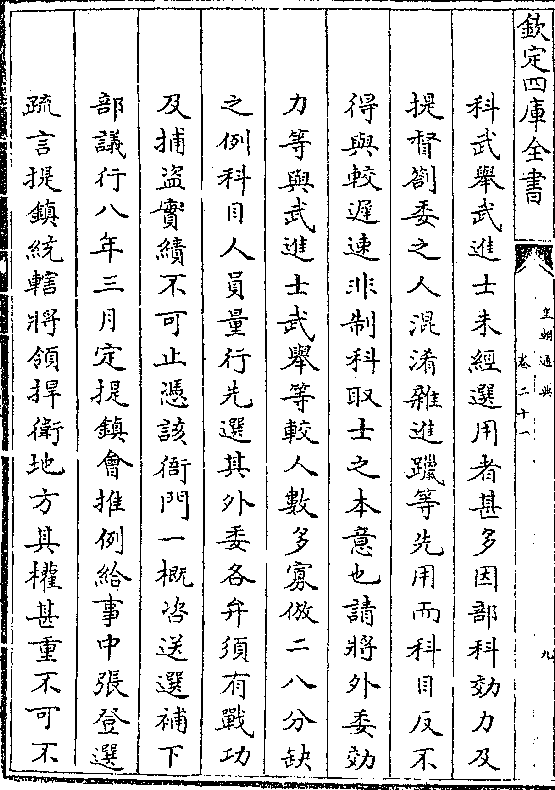 欽定四庫全書
皇朝通典
卷二十一
九
科武舉武進士未經選用者甚多因部科効力及
提督劄委之人混淆雜進躐等先用而科目反不
得與較遲速非制科取士之本意也請將外委効
力等與武進士武舉等較人數多寡倣二八分缺
之例科目人員量行先選其外委各弁須有戰功
及捕盜實績不可止憑該衙門一概咨送選補下
部議行八年三月定提鎮會推例給事中張登選
疏言提鎮統轄將領捍衛地方其權甚重不可不